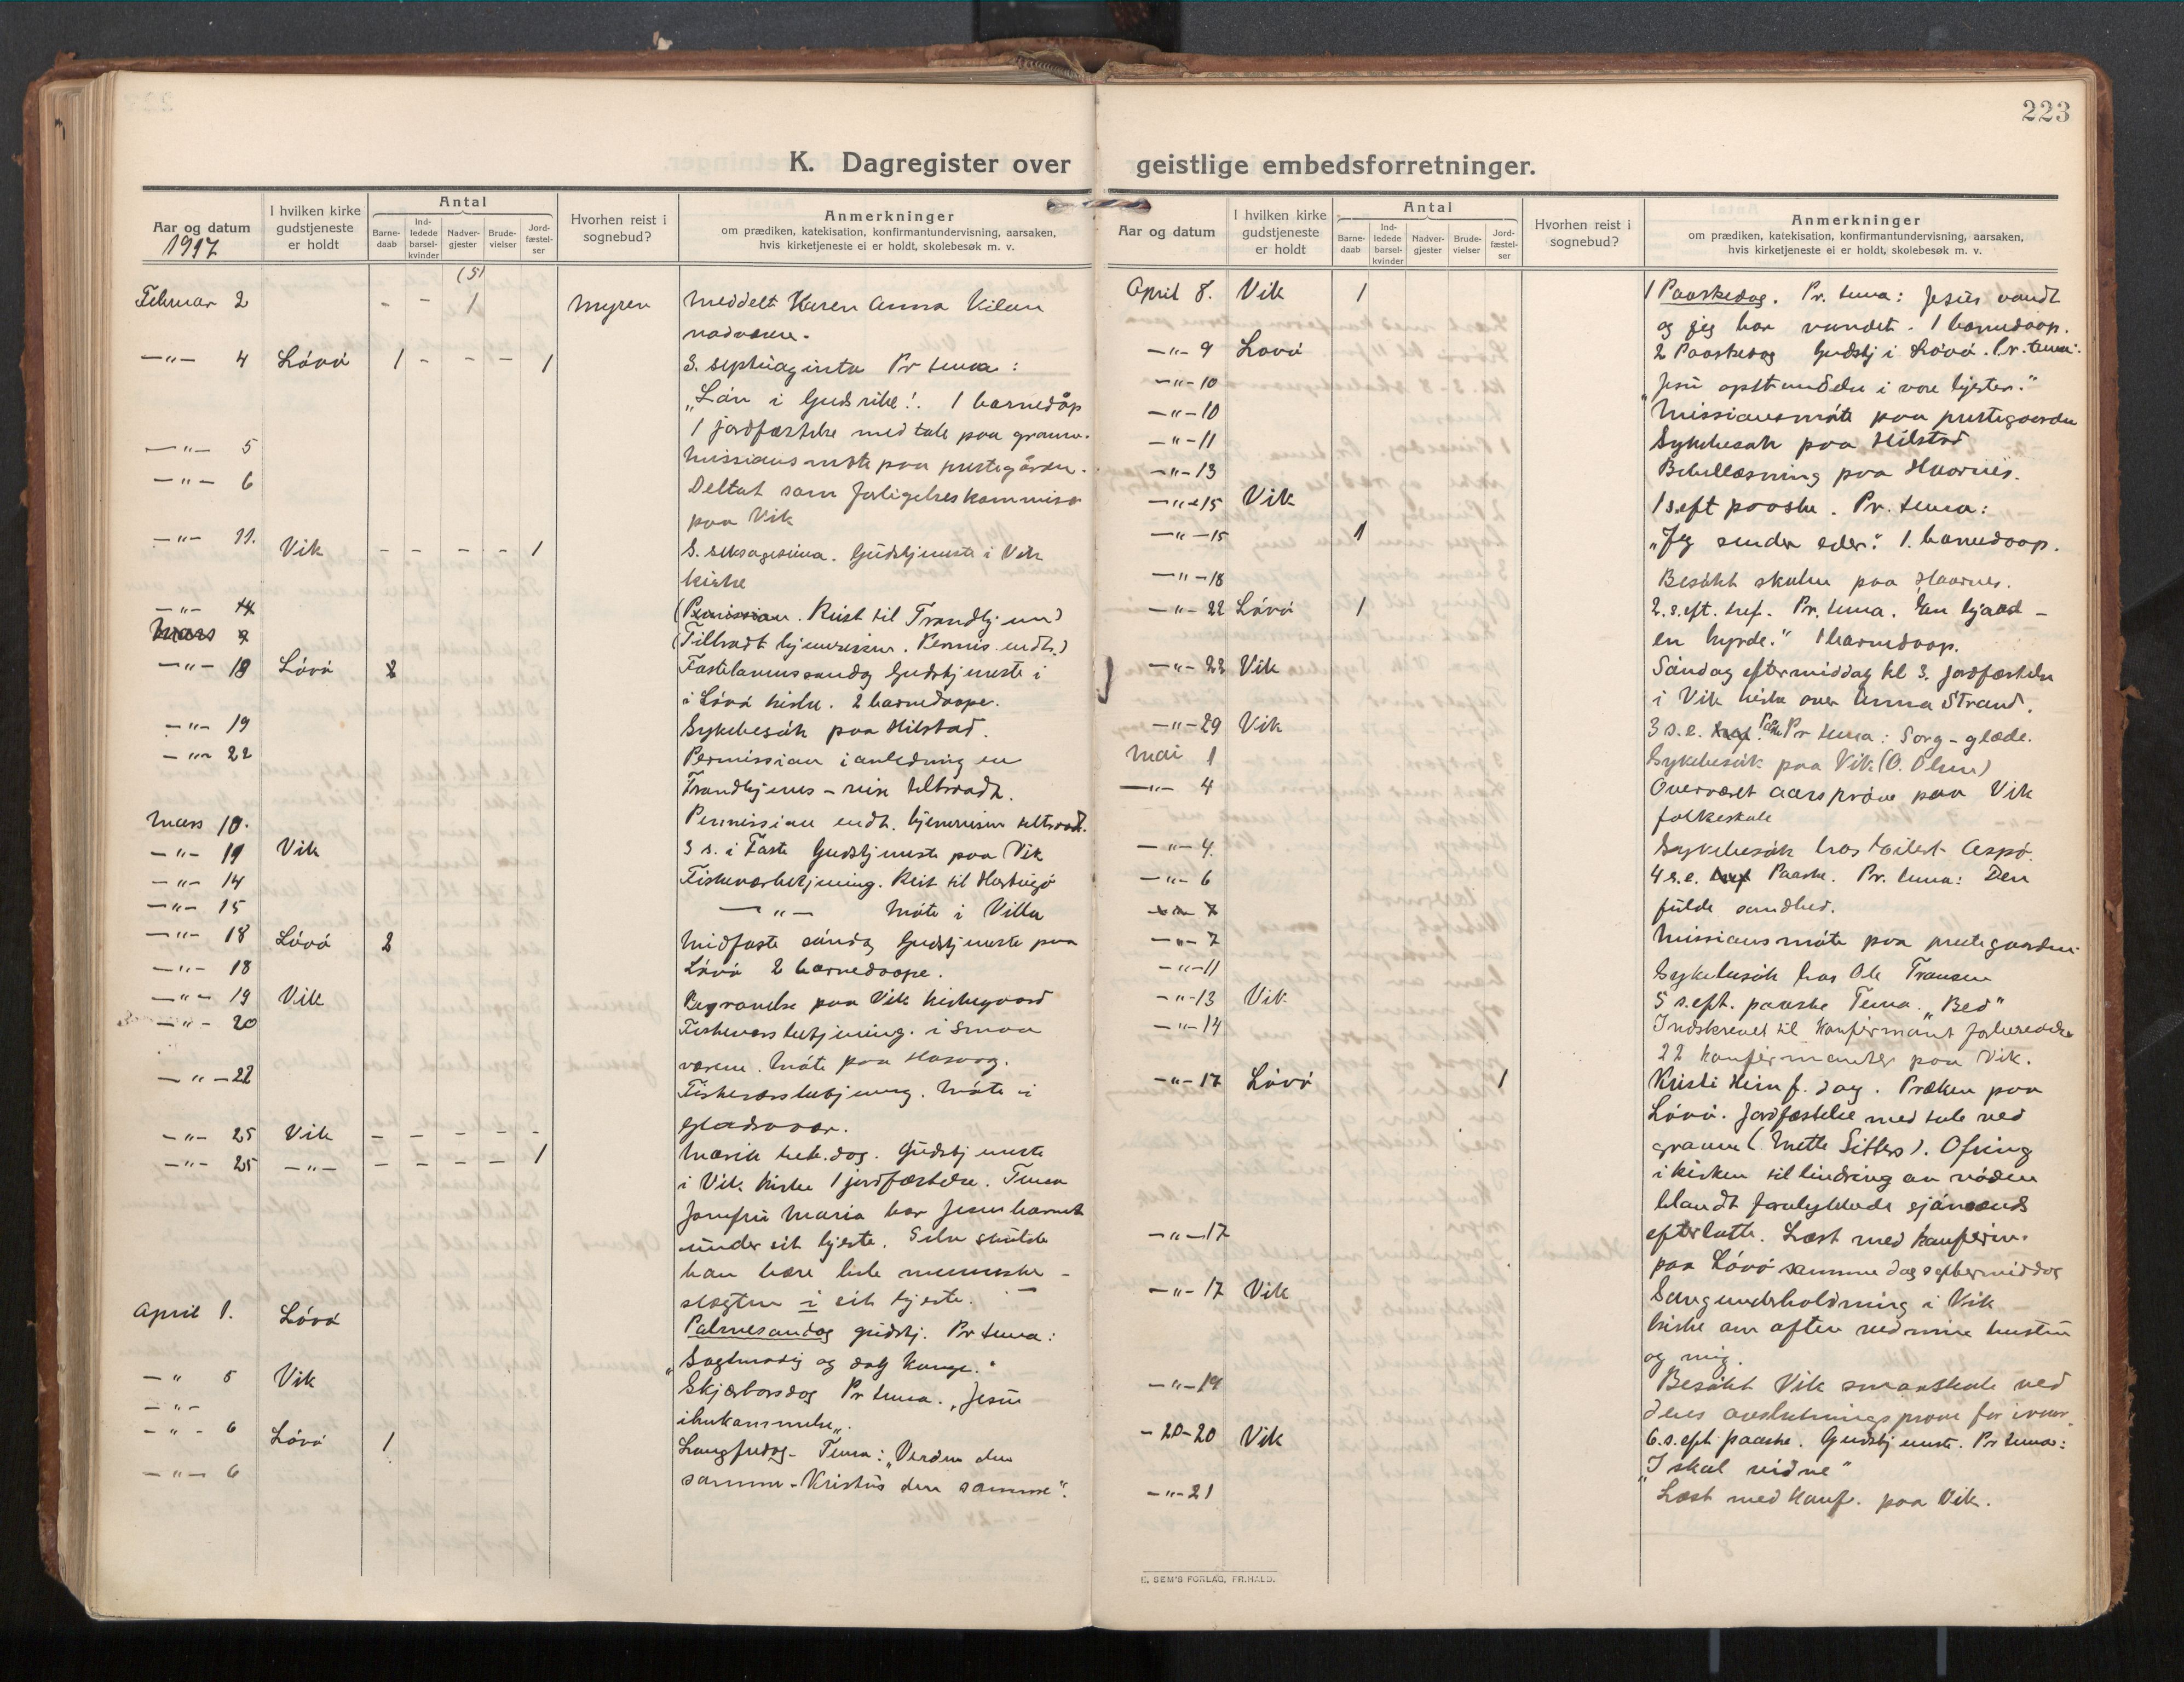 223
K. Dagregister over geistlige embedsforretninger.
Aar og datum
1917
I hvilken kirke gudstjeneste er holdt
Antal
Barnedaab
Indledede barselkvinder
Nadvergjester
Brudevielser
Jordfæstelser
Hvorhen reist i sognebud?
Anmerkninger
om prædiken, katekisation, konfirmantundervisning, aarsaken,
hvis kirketjeneste ei er holdt, skolebesøk m. v.
(5)
Februar 2 - - 1 Myren Meddelt Karen Anna Kilan
nadveren.
—"— 4 Lövö 1 - - - 1 S. septuaginta Pr tema:
„Lön i Guds rike". 1 barnedåp
1 jordfæstelse med tale paa graven.
—"— 5 Missionsmöte paa prestegården.
—"— 6 Deltat som forligelseskommisær
paa Vik
—"— 11. Vik - - - - 1 S. seksagesima. Gudstjeneste i Vik
kirke
—"— 14 (Permission. Reist til Trondhjem)
Mars 9 (Tiltraadt hjemreisen. Permis. endt.)
—"— 18 Lövö 2 Fastelavnssöndag Gudstjeneste i
i Lövö kirke. 2 barnedaape.
—"— 19 Sykebesök paa Hilstad.
—"— 22 Permission i anledning en
Trondhjems-reise tiltraadt.
Mars 10. Permission endt. hjemreisen tiltraadt.
—"— 11 Vik 3 s. i Faste Gudstjeneste paa Vik
—"— 14 Fiskeværbetjening. Reist til
—"— 15 —"— Möte i Villa
—"— 18 Lövö 2 Midfaste söndag Gudstjeneste paa
—"— 18 Lövö 2 barnedaape.
—"— 19 Vik Begravelse paa Vik kirkegaard
—"— 20 Fiskeværsbetjening. i Smaa
værene. Möte paa Hasvaag.
—"— 22 Fiskeværsbetjening. Möte i
Gladsøvær.
—"— 25 Vik - - - - - Mariæ beb. dag. Gudstjeneste
—"— 25 —"— - - - - 1 i Vik kirke 1 jordfæstelse. Tema
Jomfru Maria bar Jesusbarnet
under sit hjerte. Selv skulde
han bære hele menneske-
slegten i sit hjerte.
April 1. Lövö Palmesöndag gudstj. Pr tema:
„Sagtmodig og dog konge."
—"— 5 Vik Skjærtorsdag Pr tema. „Jesu
—"— ihukommelse".
—"— 6 Lövö 1 Langfredag- Tema: „Verden den
—"— 6 samme - Kristus den samme".
Aar og datum
I hvilken kirke gudstjeneste er holdt
Antal
Barnedaab
Indledede barselkvinder
Nadvergjester
Brudevielser
Jordfæstelser
Hvorhen reist i sognebud?
Anmerkninger
om prædiken, katekisation, konfirmantundervisning, aarsaken,
hvis kirketjeneste ei er holdt, skolebesøk m. v.
April 8. Vik 1 1 Paaskedag. Pr. tema: Jesus vandt
og jeg har vundet. 1 barnedaap.
—"— 9 Lovö 2 Paaskedag Gudstj i Lövö. Pr. tema:
—"— 10 „Jesu opstandelse i vore hjerter."
—"— 10 Missionsmöte paa prestegaarden
—"— 11 Sykebesök paa Hilstad
—"— 13 Bibellæsning paa Haarnes.
—"— 15 Vik 1 s. eft paaske. Pr. tema:
—"— 15 1 „Jeg sender eder." 1. barnedaap.
—"— 18 Besökt skolen paa Haarnes.
—"— 22 Lövö 1 2. s. eft. Pr. tema. En hjord -
en hyrde." 1 barnedaap.
—"— 22 Vik Söndag eftermiddag kl 3. jordfæstelse
i Vik kirke over Anna Strand.
—"— 29 Vik 3 s. e. Paaske Pr tema: Sorg - glæde.
Mai 1 Sykebesök paa Vik (O. Olsen)
—"— 4 Overværet aarspröve paa Vik
folkeskole
—"— 4. Sykebesök hos Eilert Aspö.
—"— 6 4 s. e. Paaske. Pr. tema: Den
—"— 7 fulde sandhed.
—"— 7 Missionsmöte paa prestegaarden
—"— 11 Sykebesök hos Ole Fransen
—"— 13 Vik 5 s. eft. paaske Tema „Bed"
—"— 14 Indskrevet til konfirmant forberedelse
22 konfirmanter paa Vik.
—"— 17 Lövö 1 Kristi Him f. dag. Præken paa
Lövö. jordfæstelse med tale ved
graven (Mette Sitters). Ofring
i kirken til lindring av nöden
blandt forulykkede sjömænds
—"— 17 efterlatte. Læst med konfirm.
paa Lövö samme dags eftermiddag
—"— 17 Vik Sangunderholdning i Vik
kirke om aften ved min hustru
og mig.
—"— 19 Besökt Vik smaaskole ved
dens avslutningspröve for ivaar.
- 20-20 Vik 6. s. eft paaske. Gudstjeneste. Pr tema:
„I skal vidne"
—"— 21 Læst med konf. paa Vik.
E. SEM'S FORLAG, FR.HALD.